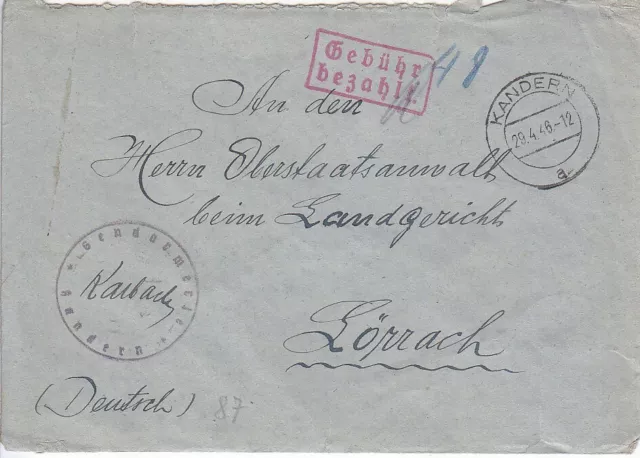 Gebühr
bezahlt.
48
KANDERN
29.4.46.-12
a
An den
Herrn Oberstaatsanwalt
beim Landgericht
Gendarmerie
Kandern
Karbach
Lörrach
(Deutsch)
87